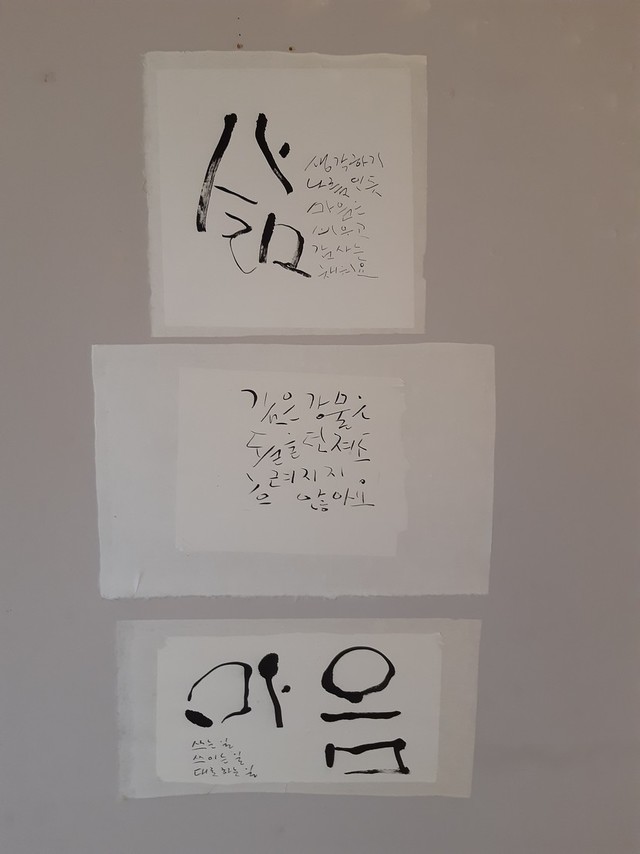 삶
생각하기
나름인듯
마음은
비우고
감사는
채워요
깊은 강물은
돌을 던져도
흐려지지
않아요
마음
쓰는 일
쓰이는 일